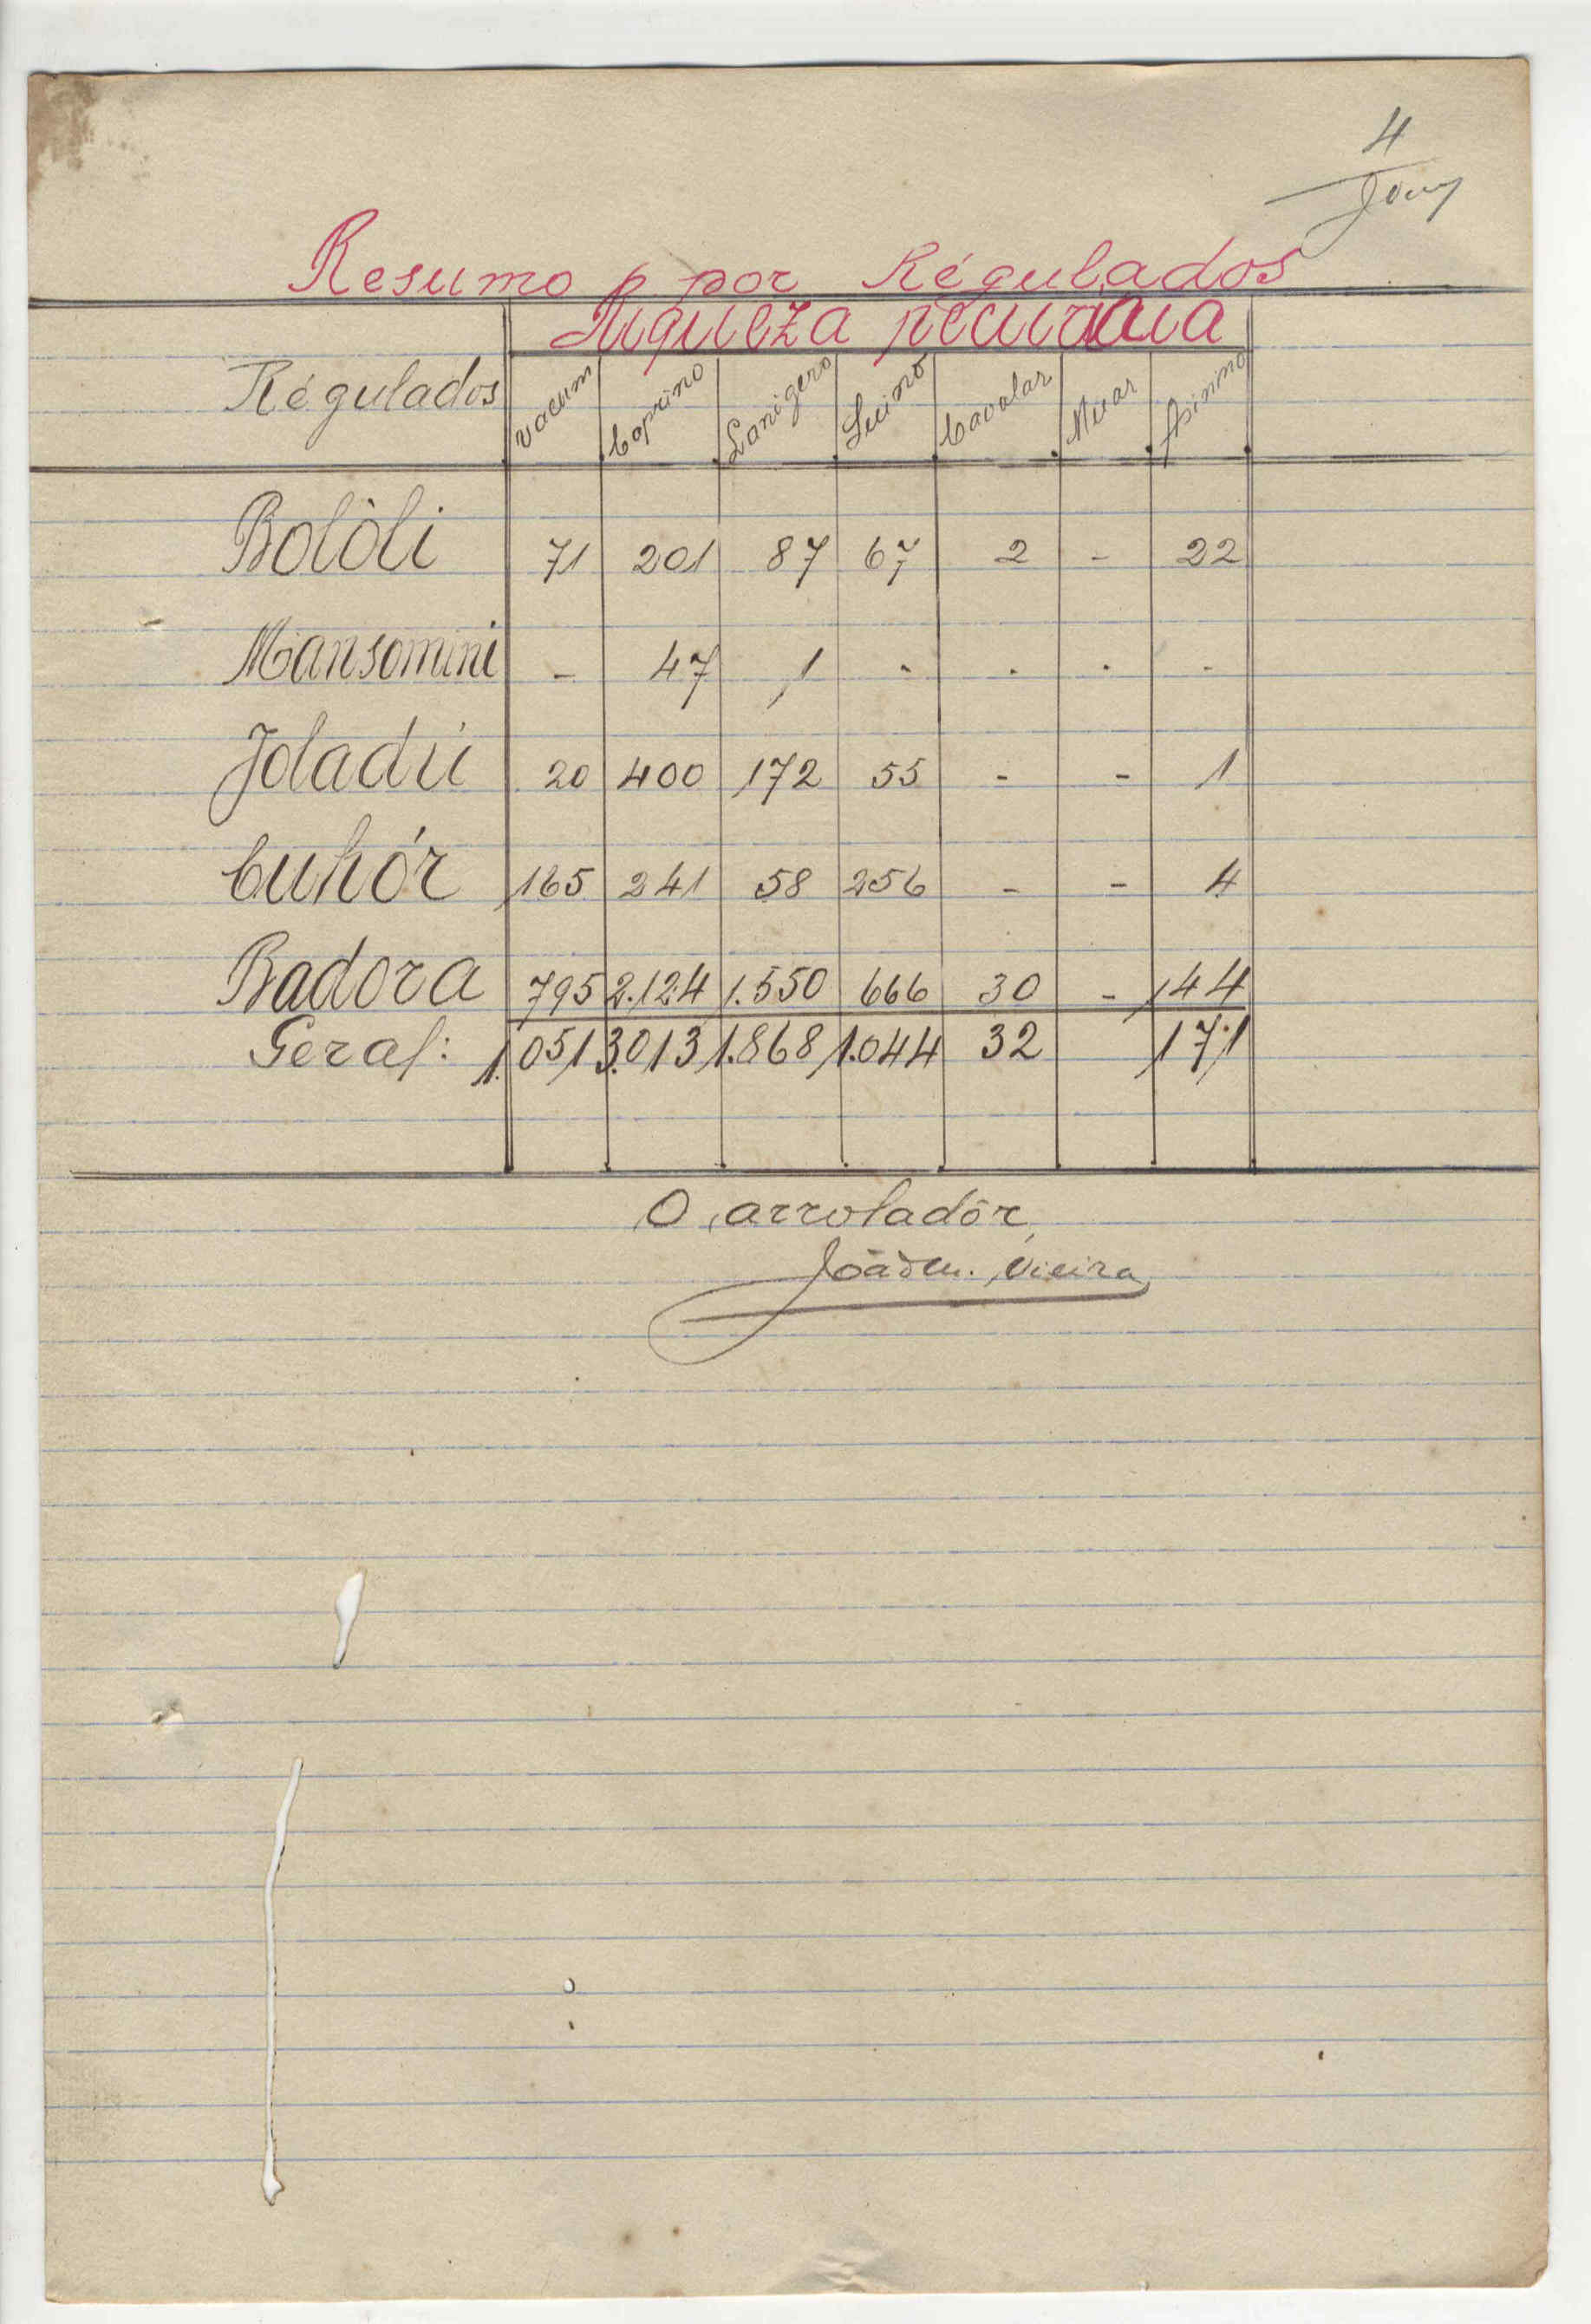 4
Resumo por Régulados
Riqueza pecuraia
Régulados vacum Caprino Lanigero Suino Cavalar Muar Asinino
Bolôli 71 201 87 67 2 - 22
Mansomini - 47 1 - - - -
Joladú 20 400 172 55 - - 1
Cuhór 165 241 58 256 - - 4
Badora 795 2.124 1.550 666 30 - 144
Geral: 1.051 3.013 1.868 1.044 32 171
O arroladôr,
João M. Vieira